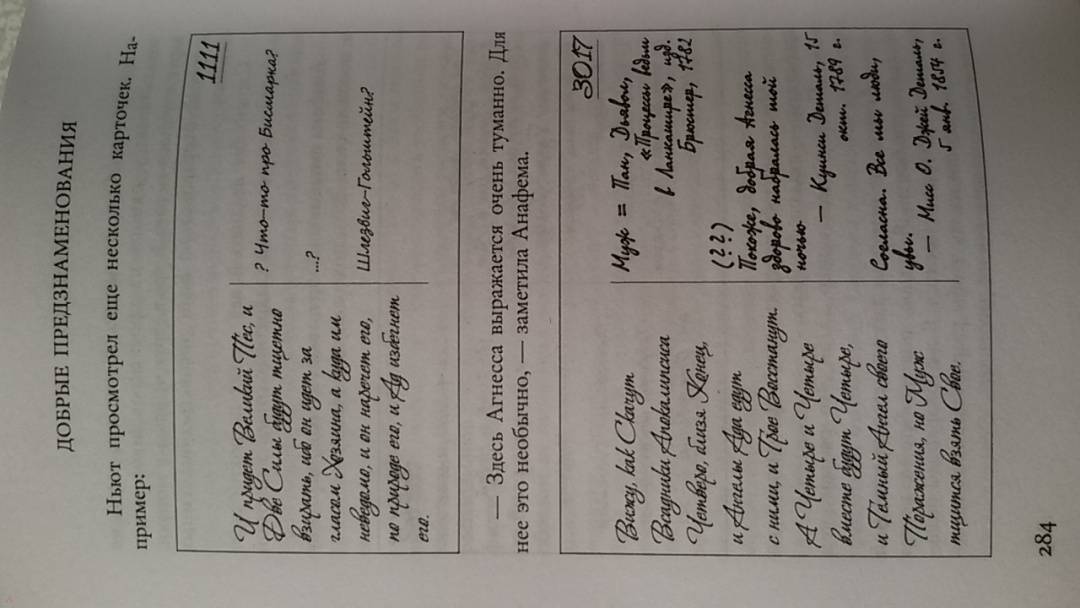 ДОБРЫЕ ПРЕДЗНАМЕНОВАНИЯ
Ньют просмотрел еще несколько карточек. На-
пример:
1111
И придет Великий Пес, и
Две Силы будут тщетно
взирать, ибо он идет за
гласом Хозяина, а куда им
неведомо, и он наречет его,
по природе его, и Ад избегнет
его.
? Что-то про Бисмарка?
...?
Шлезвиг-Гольштейн?
— Здесь Агнесса выражается очень туманно. Для
нее это необычно, — заметила Анафема.
3017
Вижу, как Скачут
Всадники Апокалипсиса
Четверо, близя Конец,
и Ангелы Ада едут
с ними, и Трое Восстанут.
А Четыре и Четыре
вместе будут Четыре,
и Темный Ангел своего
Поражения, но Муж
тщится взять Свое.
Муж = Пан, Дьявол,
«Процессы ведьм
в Ланкашире», изд.
Брюстер, 1782
(??)
Похоже, добрая Агнесса
здорово набралась той
ночью
— Куинси Деталь, 15
окт. 1789 г.
Согласна. Все мы люди,
увы.
— Мисс О. Джей Деталь,
5 янв. 1854 г.
284